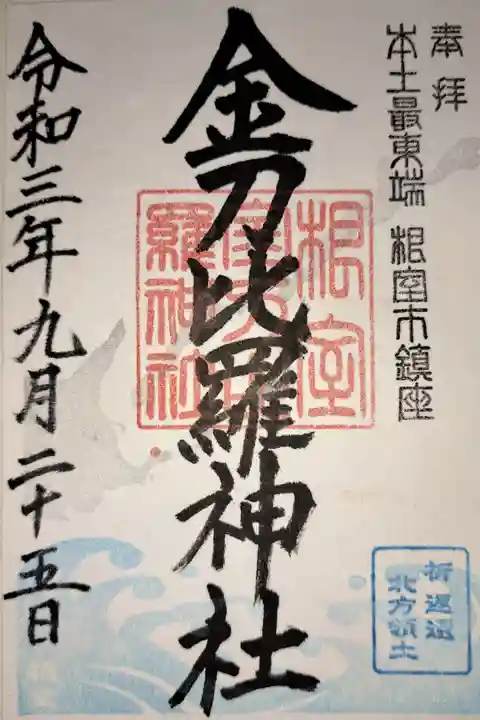 奉拝
本土最東端 根室市鎮座
金刀比羅神社
根室
金刀比
羅神社
令和三年九月二十五日
祈返還
北方領土